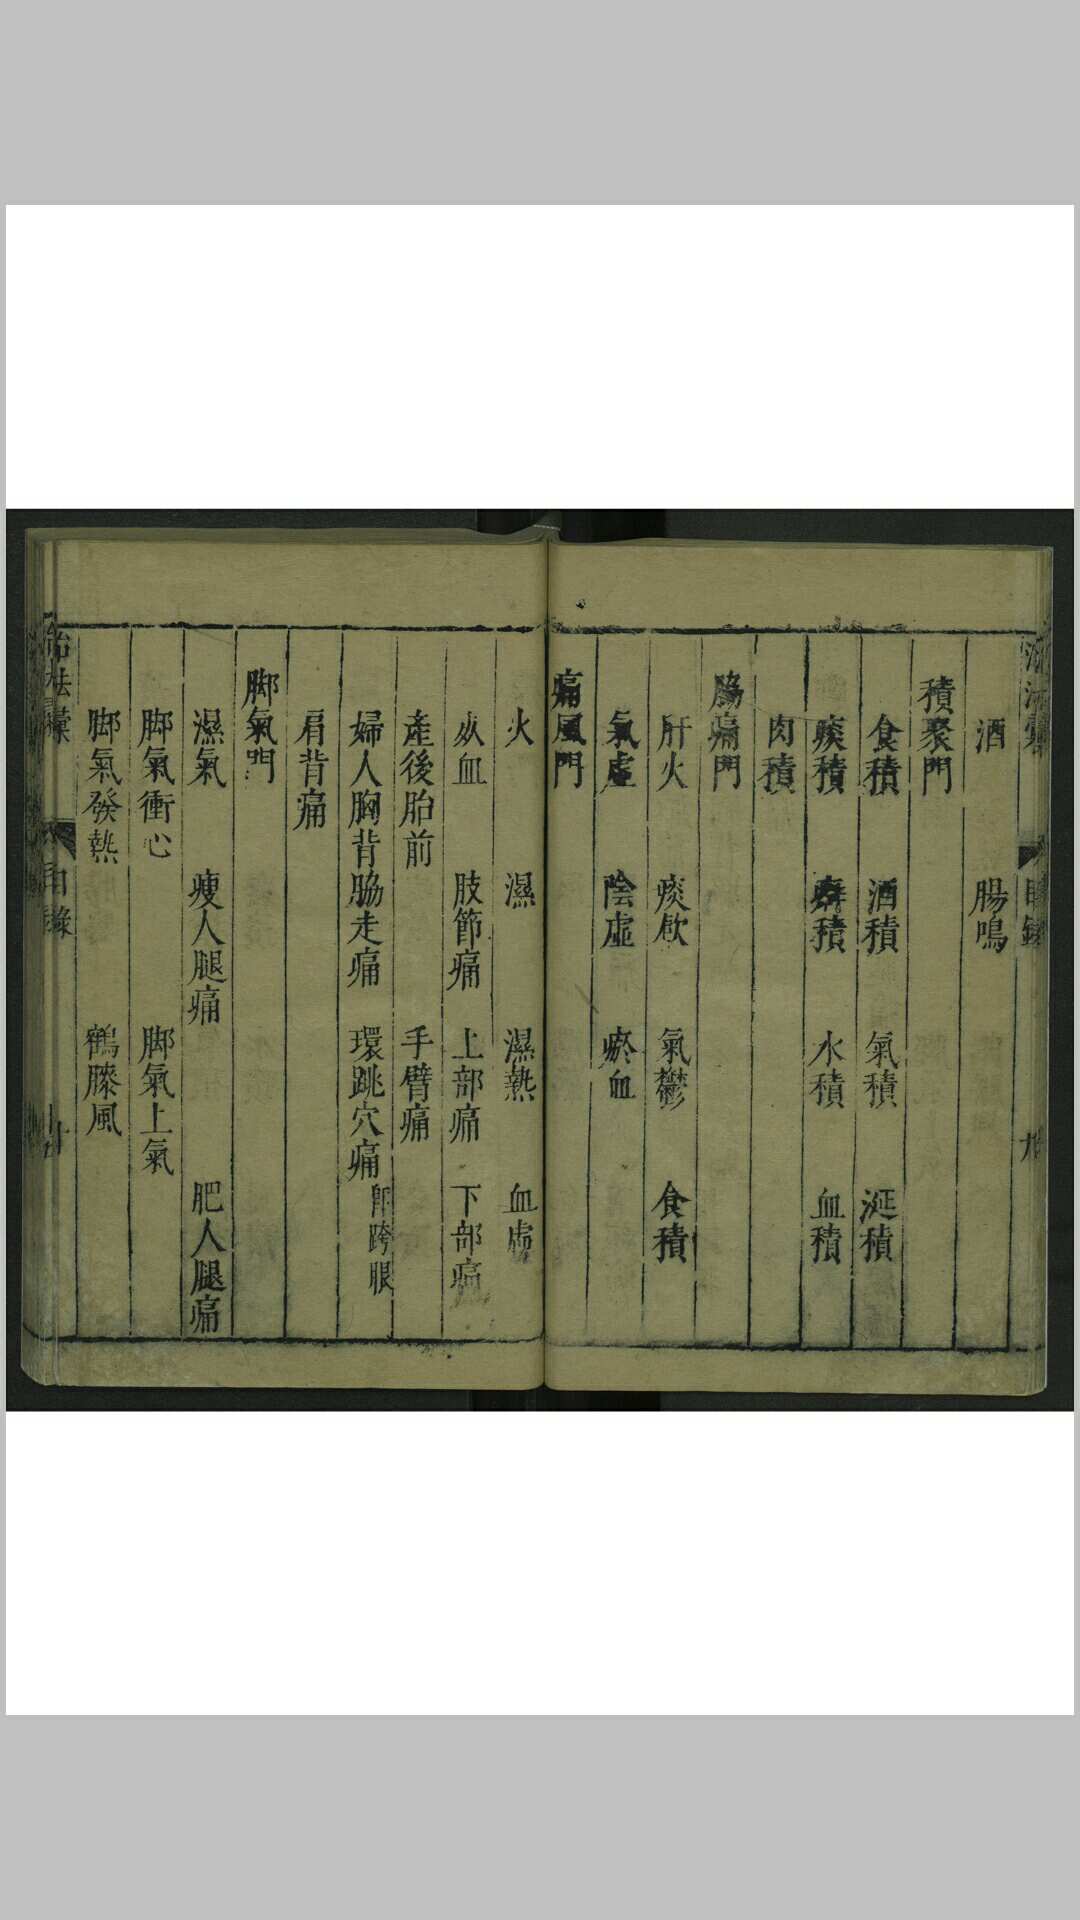 酒 腸鳴
積聚門
食積 酒積 氣積 涎積
痰積 癖積 水積 血積
肉積
脇痛門
肝火 痰飲 氣鬱 食積
氣虛 陰虛 瘀血
痛風門
火 濕 濕熱 血虛
血 肢節痛 上部痛 下部痛
產後胎前 手臂痛
婦人胸背脇走痛 環跳穴痛 即跨眼
肩背痛
脚氣門
濕氣 瘦人腿痛 肥人腿痛
脚氣衝心 脚氣上氣
脚氣發熱 鶴膝風
治法彙 目錄